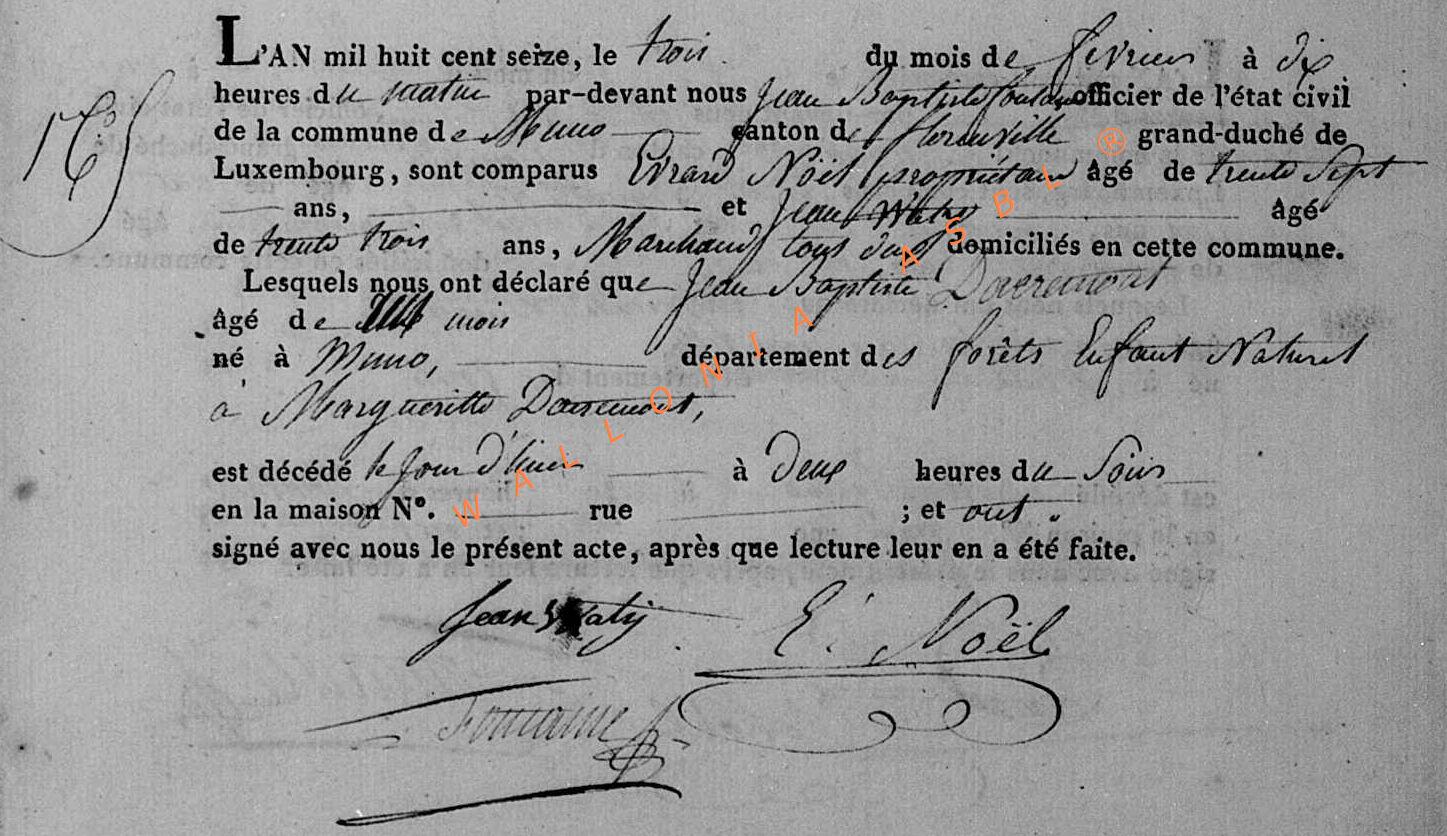 L'AN mil huit cent seize, le trois du mois de fevrier à dix
heures du matin par-devant nous Jean Baptiste officier de l'état civil
de la commune de Muno canton de florenville grand-duché de
Luxembourg, sont comparus Evrard Noël propriétaire âgé de trente Sept
ans, et Jean âgé
de trente trois ans, Marchand tous deux domiciliés en cette commune.
Lesquels nous ont déclaré que Jean Baptiste
âgé de mois
né à Muno, département des forêts Enfant Naturel
à Margueritte
est décédé le jour d'hier à deux heures du Soir
en la maison N°. rue ; et ont
signé avec nous le présent acte, après que lecture leur en a été faite.
Jean E. Noël
Fontaine
WALLONIA ASBL ®